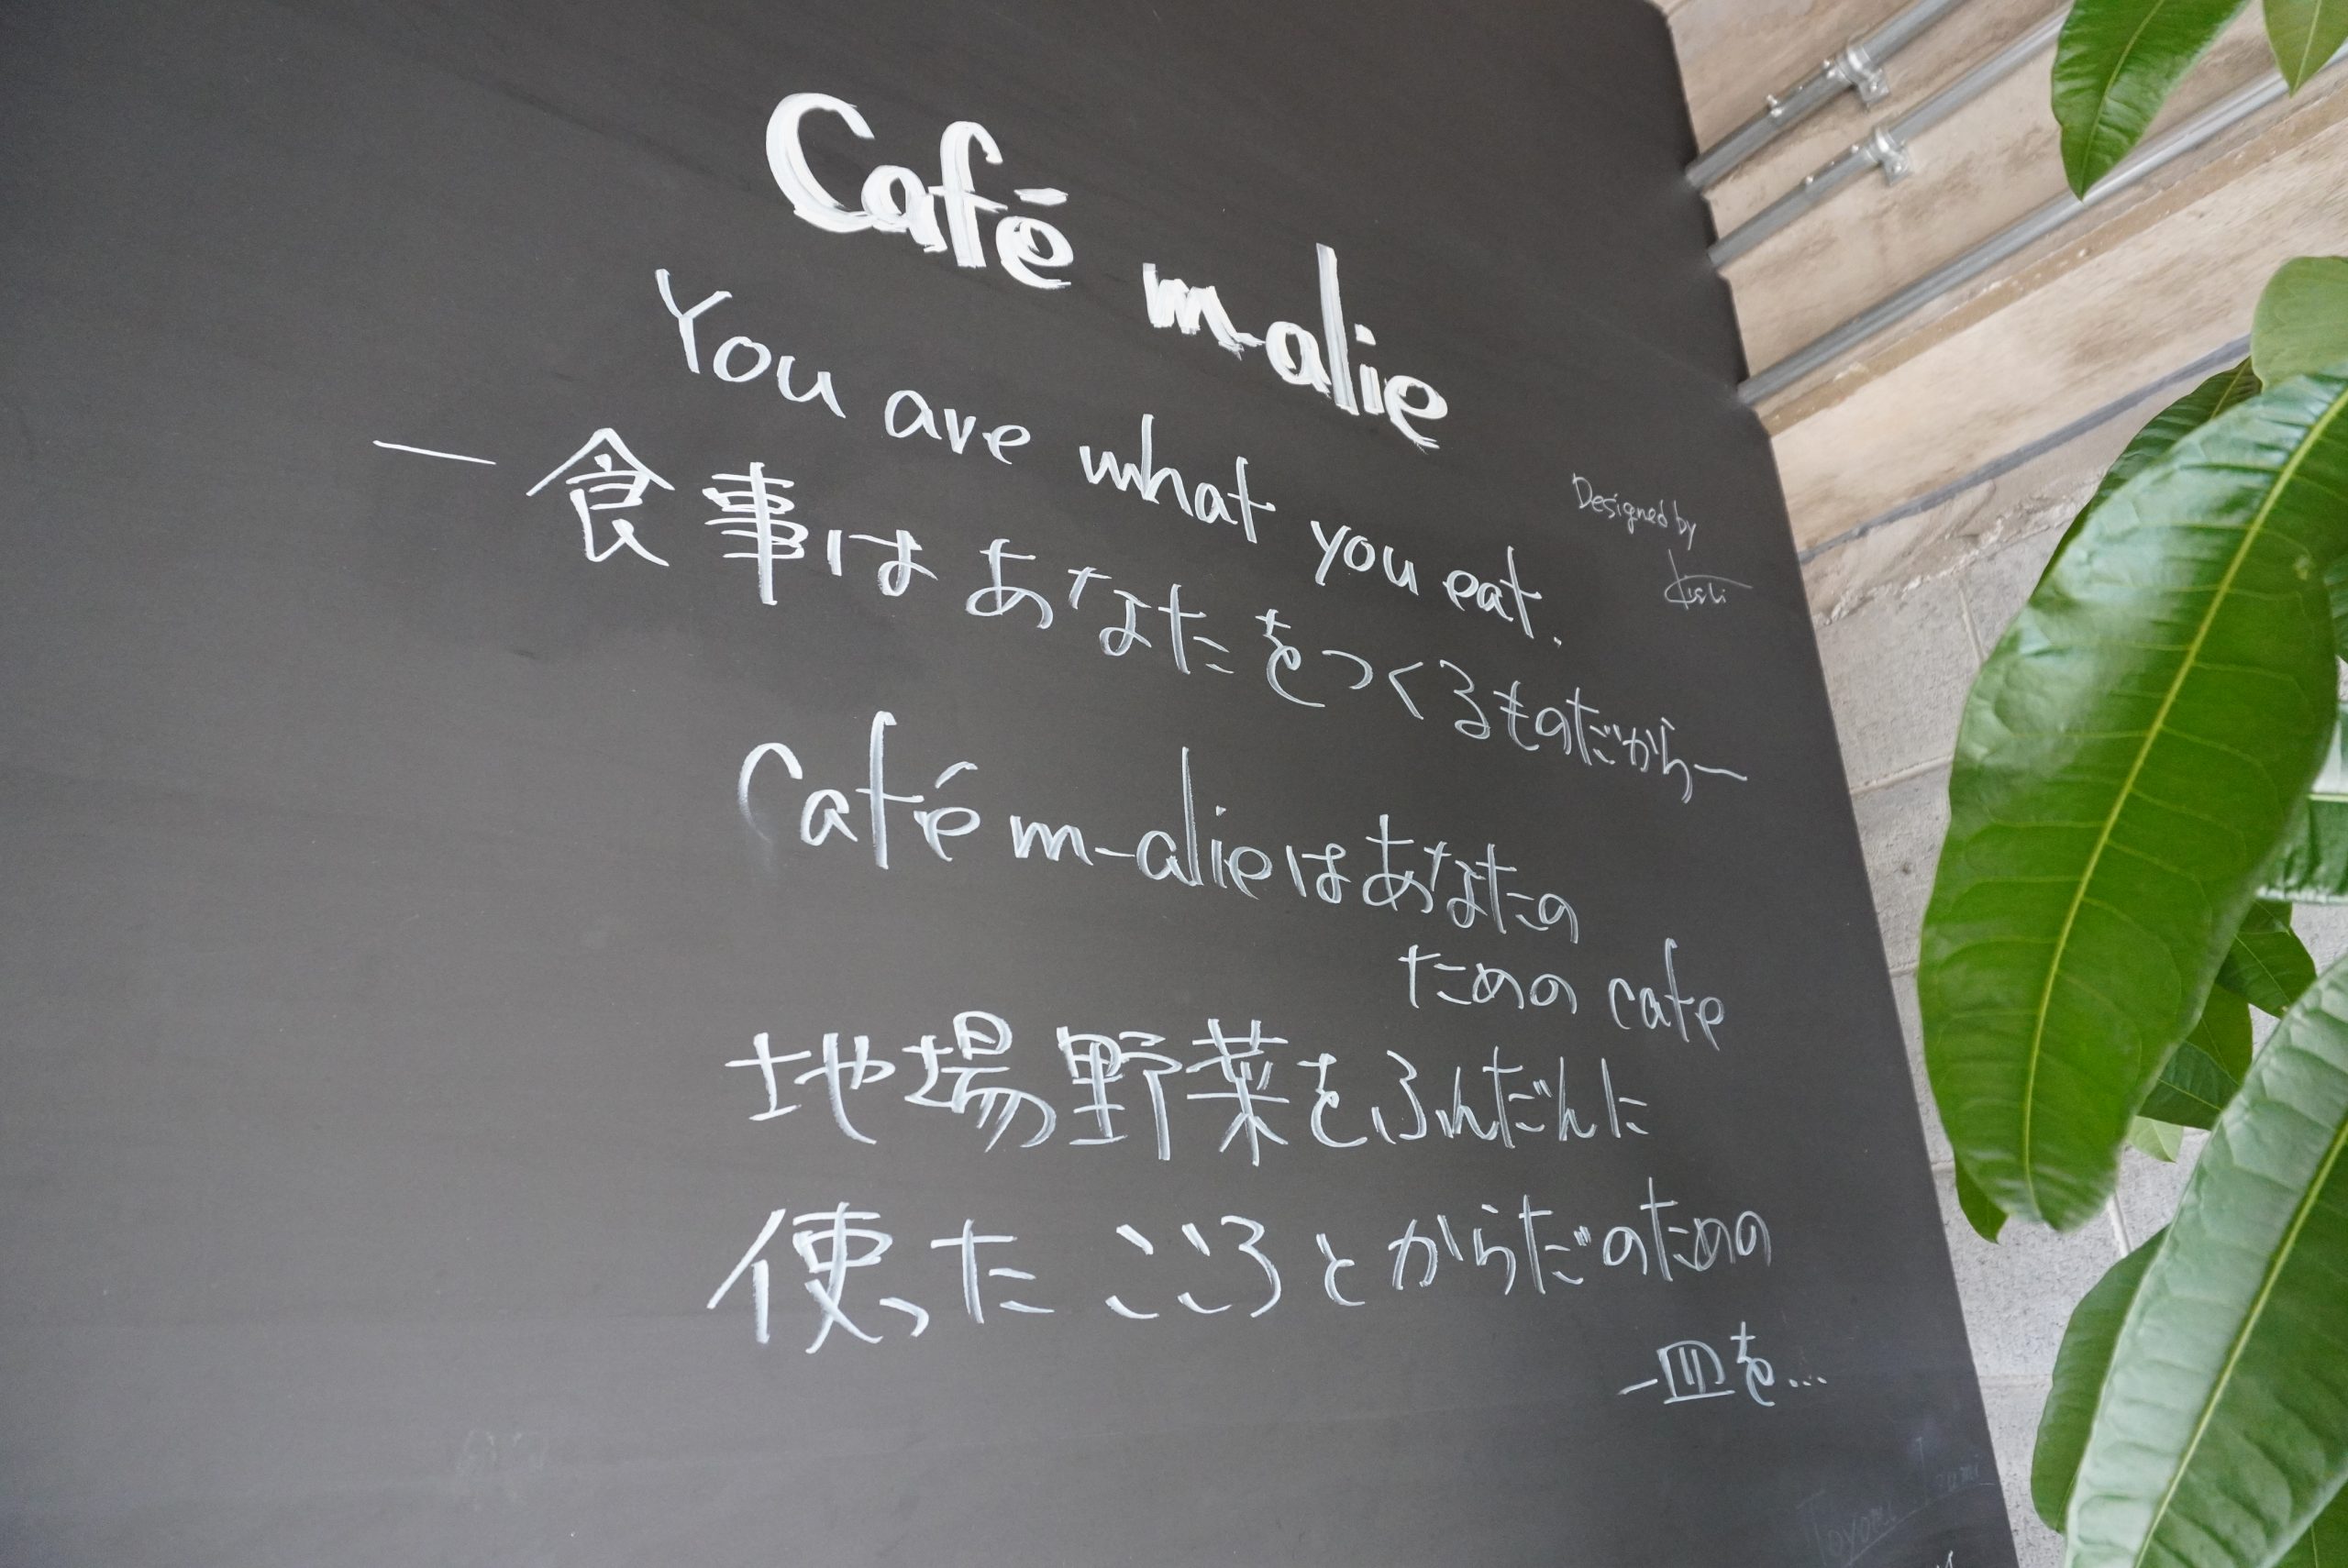 Café m-alie
You are what you eat.
Designed by
― 食事はあなたをつくるものだから―
Café m-alieはあなたの
ための cafe
地場野菜をふんだんに
使った こころとからだのための
一皿を...